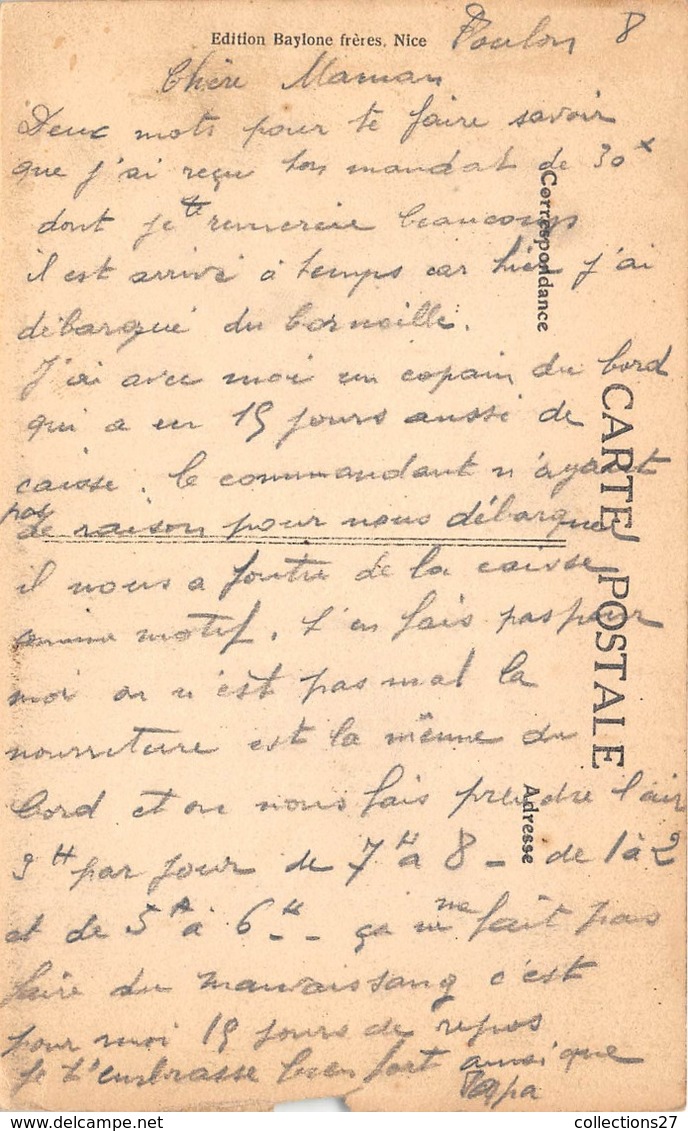 Edition Baylone frères, Nice
Toulon 8
Chère Maman
Deux mots pour te faire savoir
que j'ai reçu ton mandat de 30 x
dont je te remercie beaucoup
il est arrivé à temps car hier j'ai
débarqué du Corneille.
J'ai avec moi un copain du bord
qui a eu 15 jours aussi de
caisse. le commandant n'ayant
pas de raison pour nous débarquer
il nous a foutu de la caisse
comme motif. t'en fais pas pour
moi on n'est pas mal la
nourriture est la même du
bord et on nous fais prendre l'air
3 H par jour de 7 H a 8 - de 1 à 2
et de 5 H à 6 H - ça ne me fait pas
faire du mauvais sang c'est
pour moi 15 jours de repos
Je t'embrasse bien fort ainsi que
Papa
Correspondance
CARTE POSTALE
Adresse
collections27